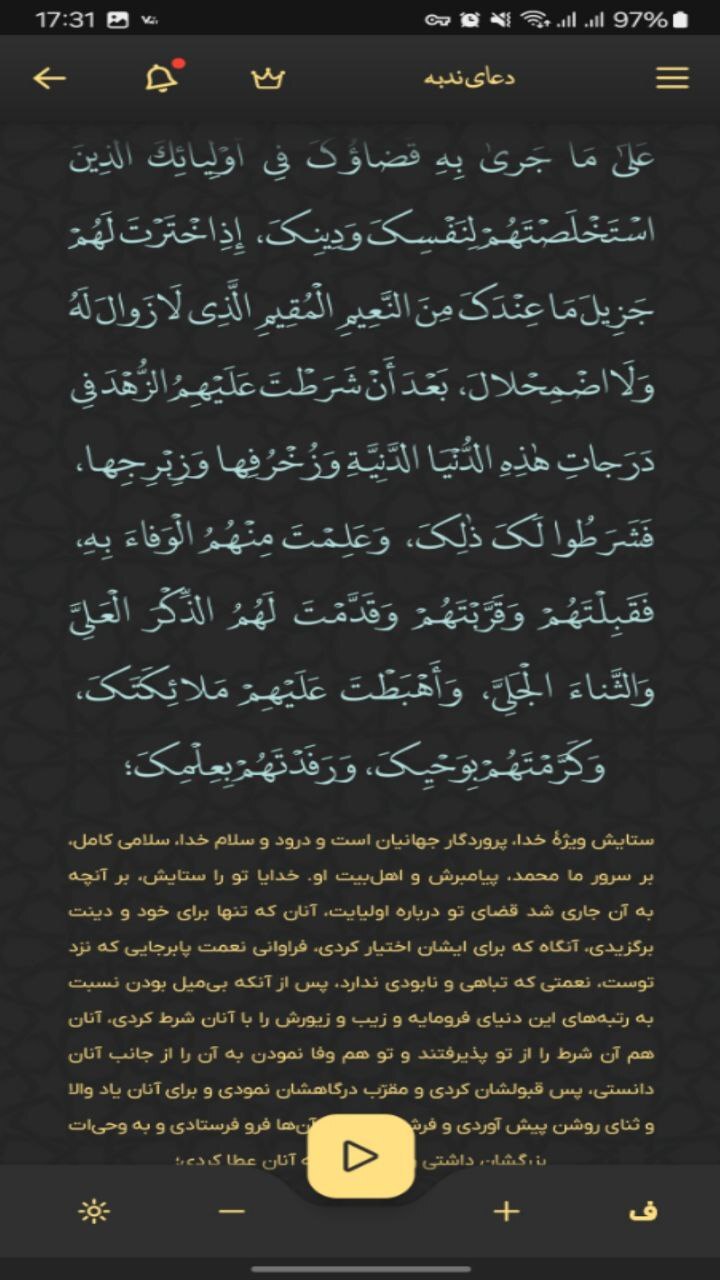 17:31 97%
دعای ندبه
عَلَىٰ مَا جَرىٰ بِهِ قَضاؤُکَ فِي أَوْلِيائِكَ الَّذِينَ
اسْتَخْلَصْتَهُمْ لِنَفْسِکَ وَدِینِکَ، إِذِ اخْتَرْتَ لَهُمْ
جَزِیلَ مَا عِنْدَکَ مِنَ النَّعِیمِ الْمُقِیمِ الَّذِی لَا زَوالَ لَهُ
وَلَا اضْمِحْلالَ، بَعْدَ أَنْ شَرَطْتَ عَلَیْهِمُ الزُّهْدَ فِی
دَرَجاتِ هٰذِهِ الدُّنْیَا الدَّنِیَّةِ وَزُخْرُفِها وَزِبْرِجِها،
فَشَرَطُوا لَکَ ذٰلِکَ، وَعَلِمْتَ مِنْهُمُ الْوَفاءَ بِهِ،
فَقَبِلْتَهُمْ وَقَرَّبْتَهُمْ وَقَدَّمْتَ لَهُمُ الذِّکْرَ الْعَلِیَّ
وَالثَّناءَ الْجَلِیَّ، وَأَهْبَطْتَ عَلَیْهِمْ مَلائِکَتَکَ،
وَکَرَّمْتَهُمْ بِوَحْیِکَ، وَرَفَدْتَهُمْ بِعِلْمِکَ؛
ستایش ویژهٔ خدا، پروردگار جهانیان است و درود و سلام خدا، سلامی کامل،
بر سرور ما محمد، پیامبرش و اهل‌بیت او. خدایا تو را ستایش، بر آنچه
به آن جاری شد قضای تو درباره اولیایت، آنان که تنها برای خود و دینت
برگزیدی، آنگاه که برای ایشان اختیار کردی، فراوانی نعمت پابرجایی که نزد
توست، نعمتی که تباهی و نابودی ندارد، پس از آنکه بی‌میل بودن نسبت
به رتبه‌های این دنیای فرومایه و زیب و زیورش را با آنان شرط کردی، آنان
هم آن شرط را از تو پذیرفتند و تو هم وفا نمودن به آن را از جانب آنان
دانستی، پس قبولشان کردی و مقرّب درگاهشان نمودی و برای آنان یاد والا
و ثنای روشن پیش آوردی و آن‌ها فرو فرستادی و به وحی‌ات
بزرگشان داشتی آنان عطا کردی؛
ف